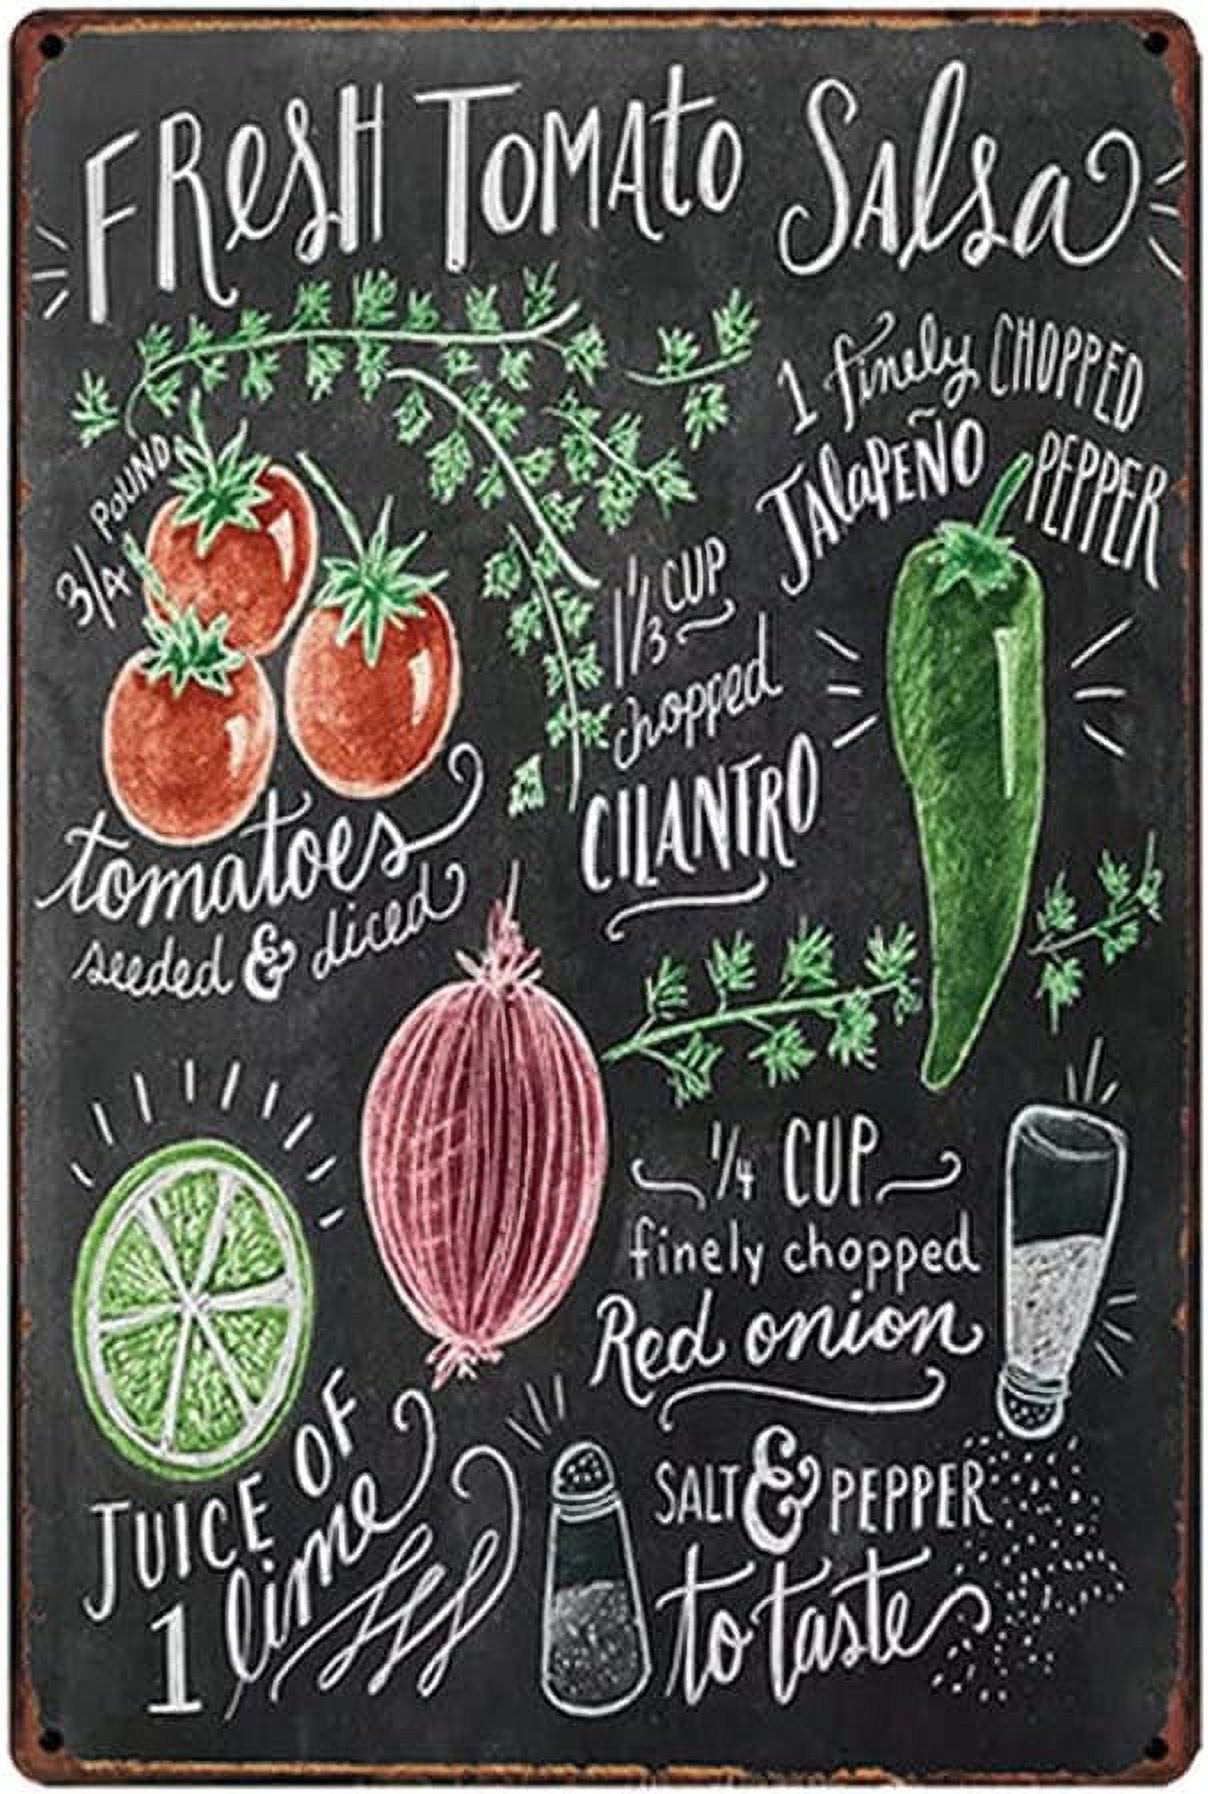 FResH TOMAto SAlsa
1 finely CHOPPED
JAlaPEÑO PEPPER
3/4 POUND
tomatoes
seeded & diced
1 1/3 CUP
chopped
CILANTRO
1/4 CUP
finely chopped
Red onion
JUICE OF
1 lime
SALT & PEPPER
to taste